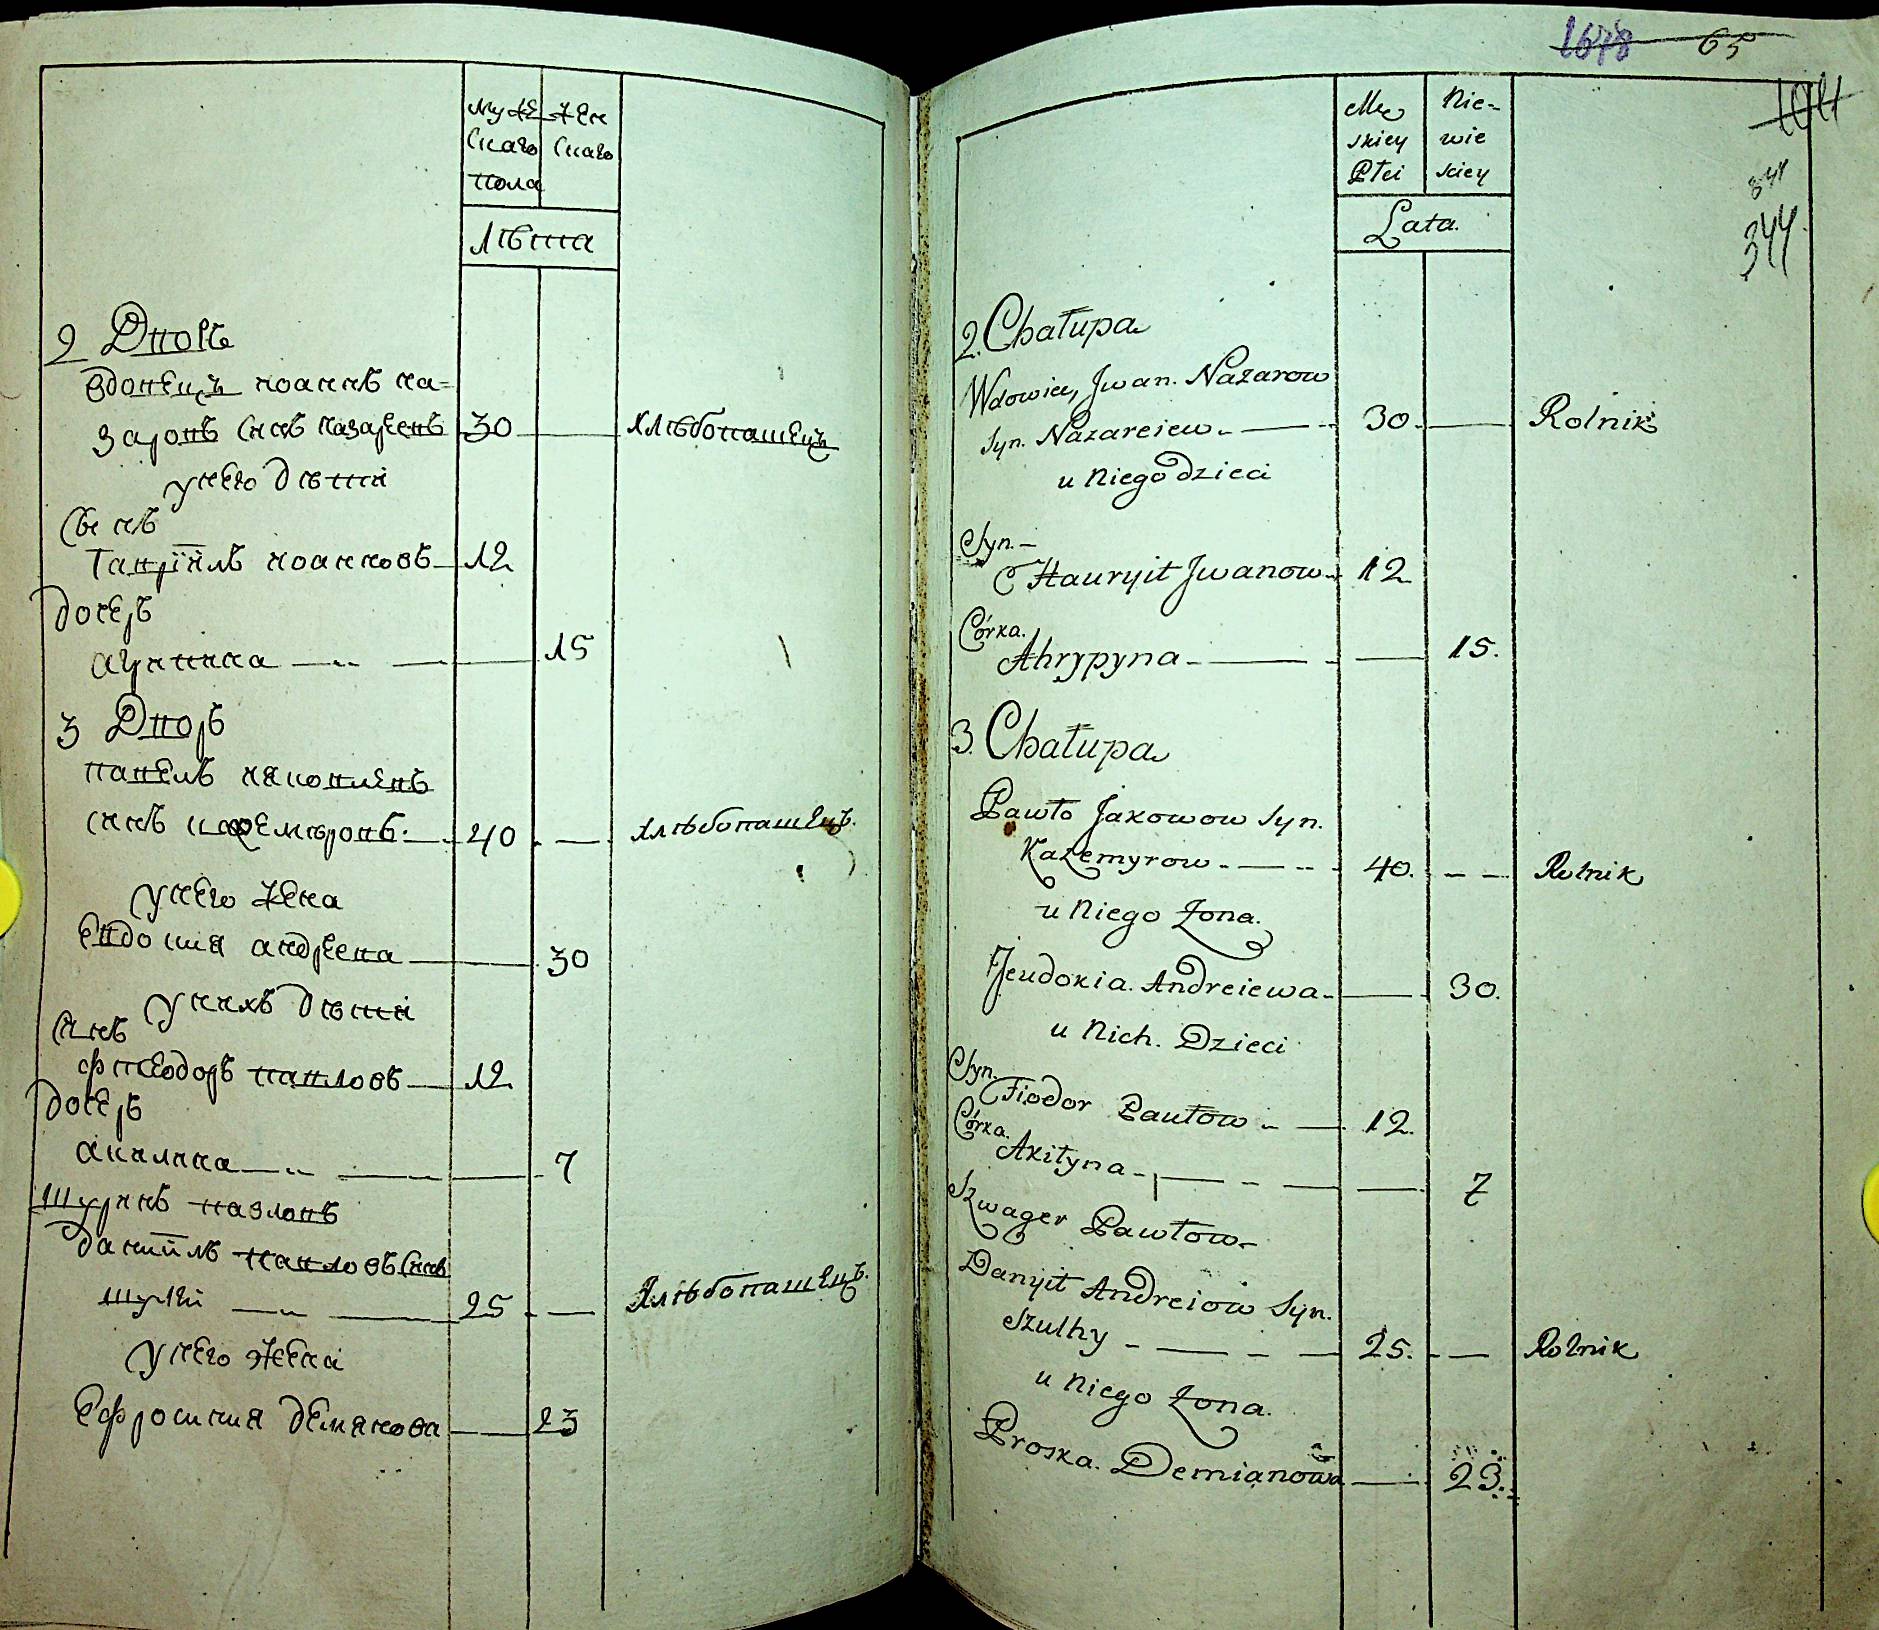 муже
скаго
пола
жен
скаго
лѣта
2 Дворъ
вдовецъ иоаннъ на=
заровъ снъ назареевъ 30 хлѣбопашецъ
унего дѣти
Сынъ
Гавріилъ иоанновъ 12
дочеръ
агрипина 15
3 Дворъ
павелъ иаковлевъ
снъ казем�ровъ 40 хлѣбопашецъ.
унего жена
Евдокия андреева 30
унихъ дѣти
Синъ
фтеодоръ павловъ 12
дочеръ
акилина 7
шуринъ павловъ
даниилъ павловъ снъ
шулги 25 хлѣбопашецъ.
унего жена
Ефросиния демянова 23
1678 65
104
344
344
Mę
skiey
Płci
Nie-
wie
sciey
Lata.
2. Chałupa
Wdowiec, Jwan. Nazarow
syn. Nazareiew. 30. Rolnik
u Niego dzieci
Syn.
Hauryił Jwanow. 12
Córka.
Ahrypyna 15.
3. Chałupa
Pawło Jakowow syn.
Kazemyrow 40. Rolnik
u Niego Żona.
Jeudokia. Andreiewa. 30.
u Nich. Dzieci
Syn.
Fiodor Pautow 12.
Córka.
Akiłyna 7
Szwager Pawłow.
Danyił Andreiow Syn.
Szulhy 25. Rolnik
u Niego Żona.
Proska. Demianowa 23.